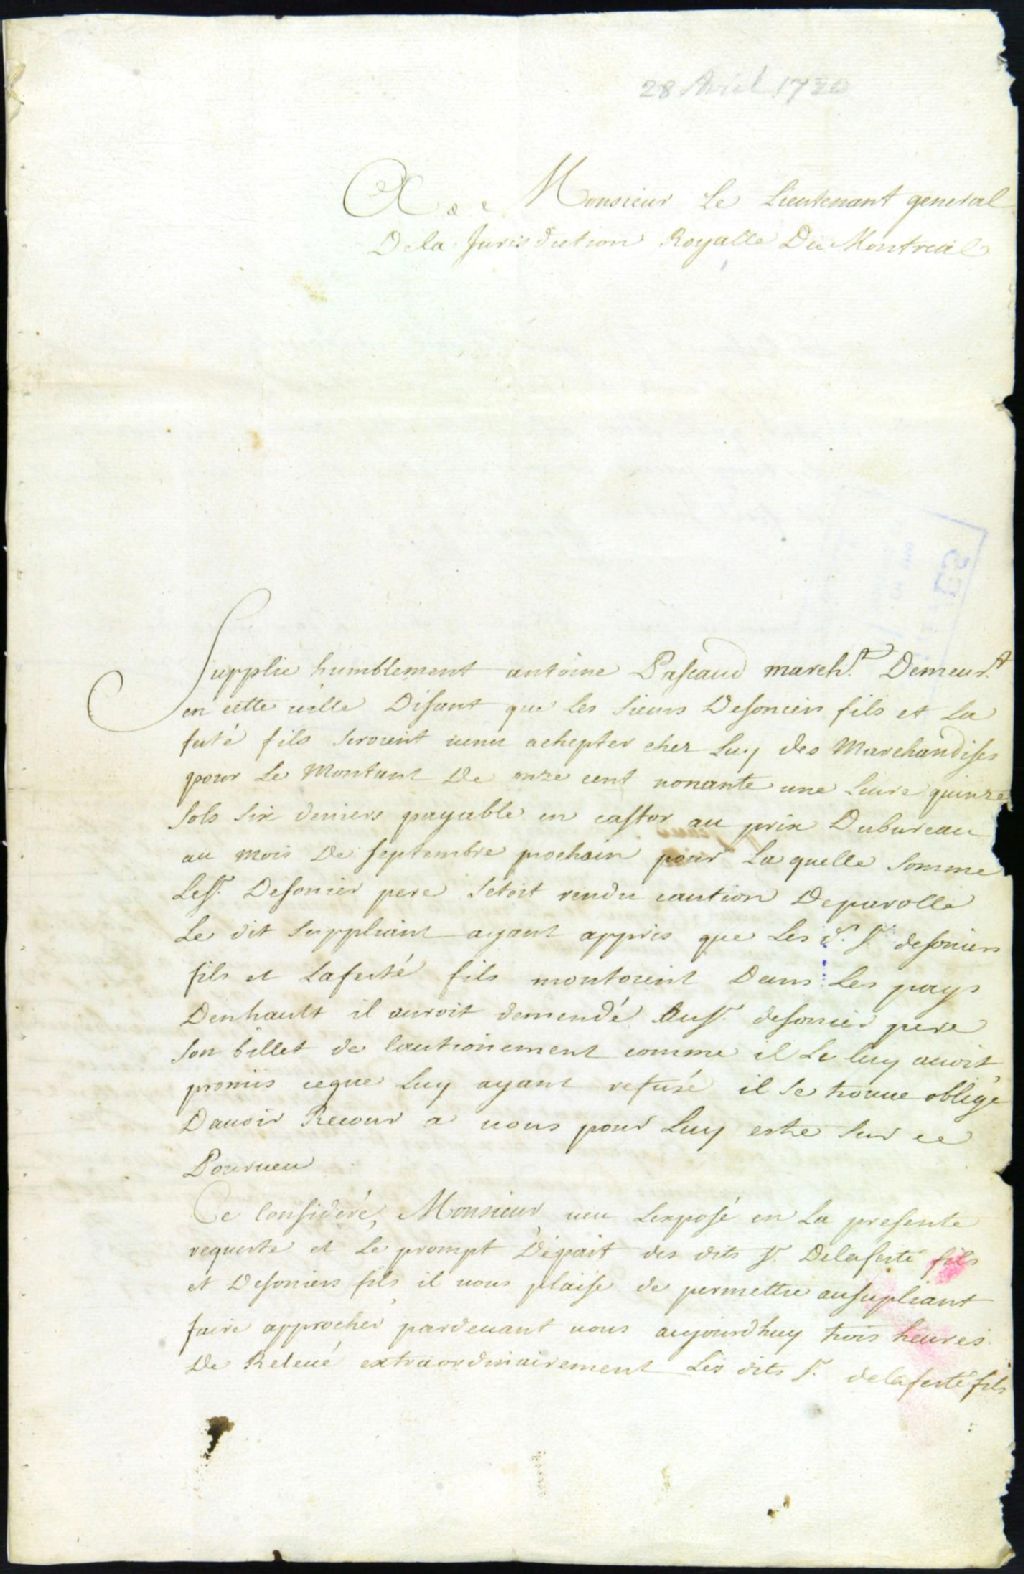 28 Avril 1720
A Monsieur Le Lieutenant general
Dela Jurisdiction Royalle De Montreal
Supplie humblement antoine Pascaud march.t Demeur.t
en cette ville Disant que les Sieurs Desoniers fils et La
ferté fils seroient venu achepter chez Luy des Marchandises
pour Le Montant De onze cent nonante une Livre quinze
sols six deniers payable en castor au prix Dubureau
au mois De septembre prochain pour Laquelle somme
Les.r Desonier pere s'étoit rendu caution Deparolle
Le dit suppliant ayant appris que Les d.t s.r desoniers
fils et Laferté fils montoient Dans Les pays
Denhault il auroit demendé Aus.r desonier pere
son billet de Cautionement comme il Le luy avoit
promis ceque Luy ayant refusé il se trouve obligé
Davoir Recour a vous pour Luy estre sur ce
Pourveu
Ce Consideré, Monsieur, veu Lexposé en La presente
requeste et Le prompt Départ des dits s.r Delaferté fils
et Desoniers fils, il vous plaise de permettre ausupliant
faire approcher pardevant vous aujourdhuy trois heures
De Relevé extraordinairement Les dits s.r delaferté fils